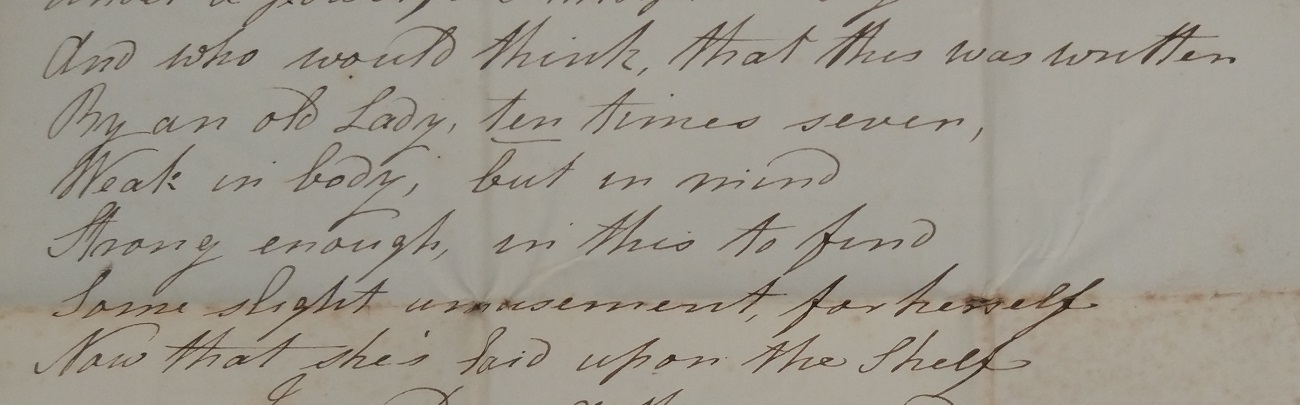 And who would think, that this was written
By an old Lady, ten times seven,
Weak in body, but in mind
Strong enough, in this to find
Some slight amusement, for herself
Now that she's laid upon the Shelf